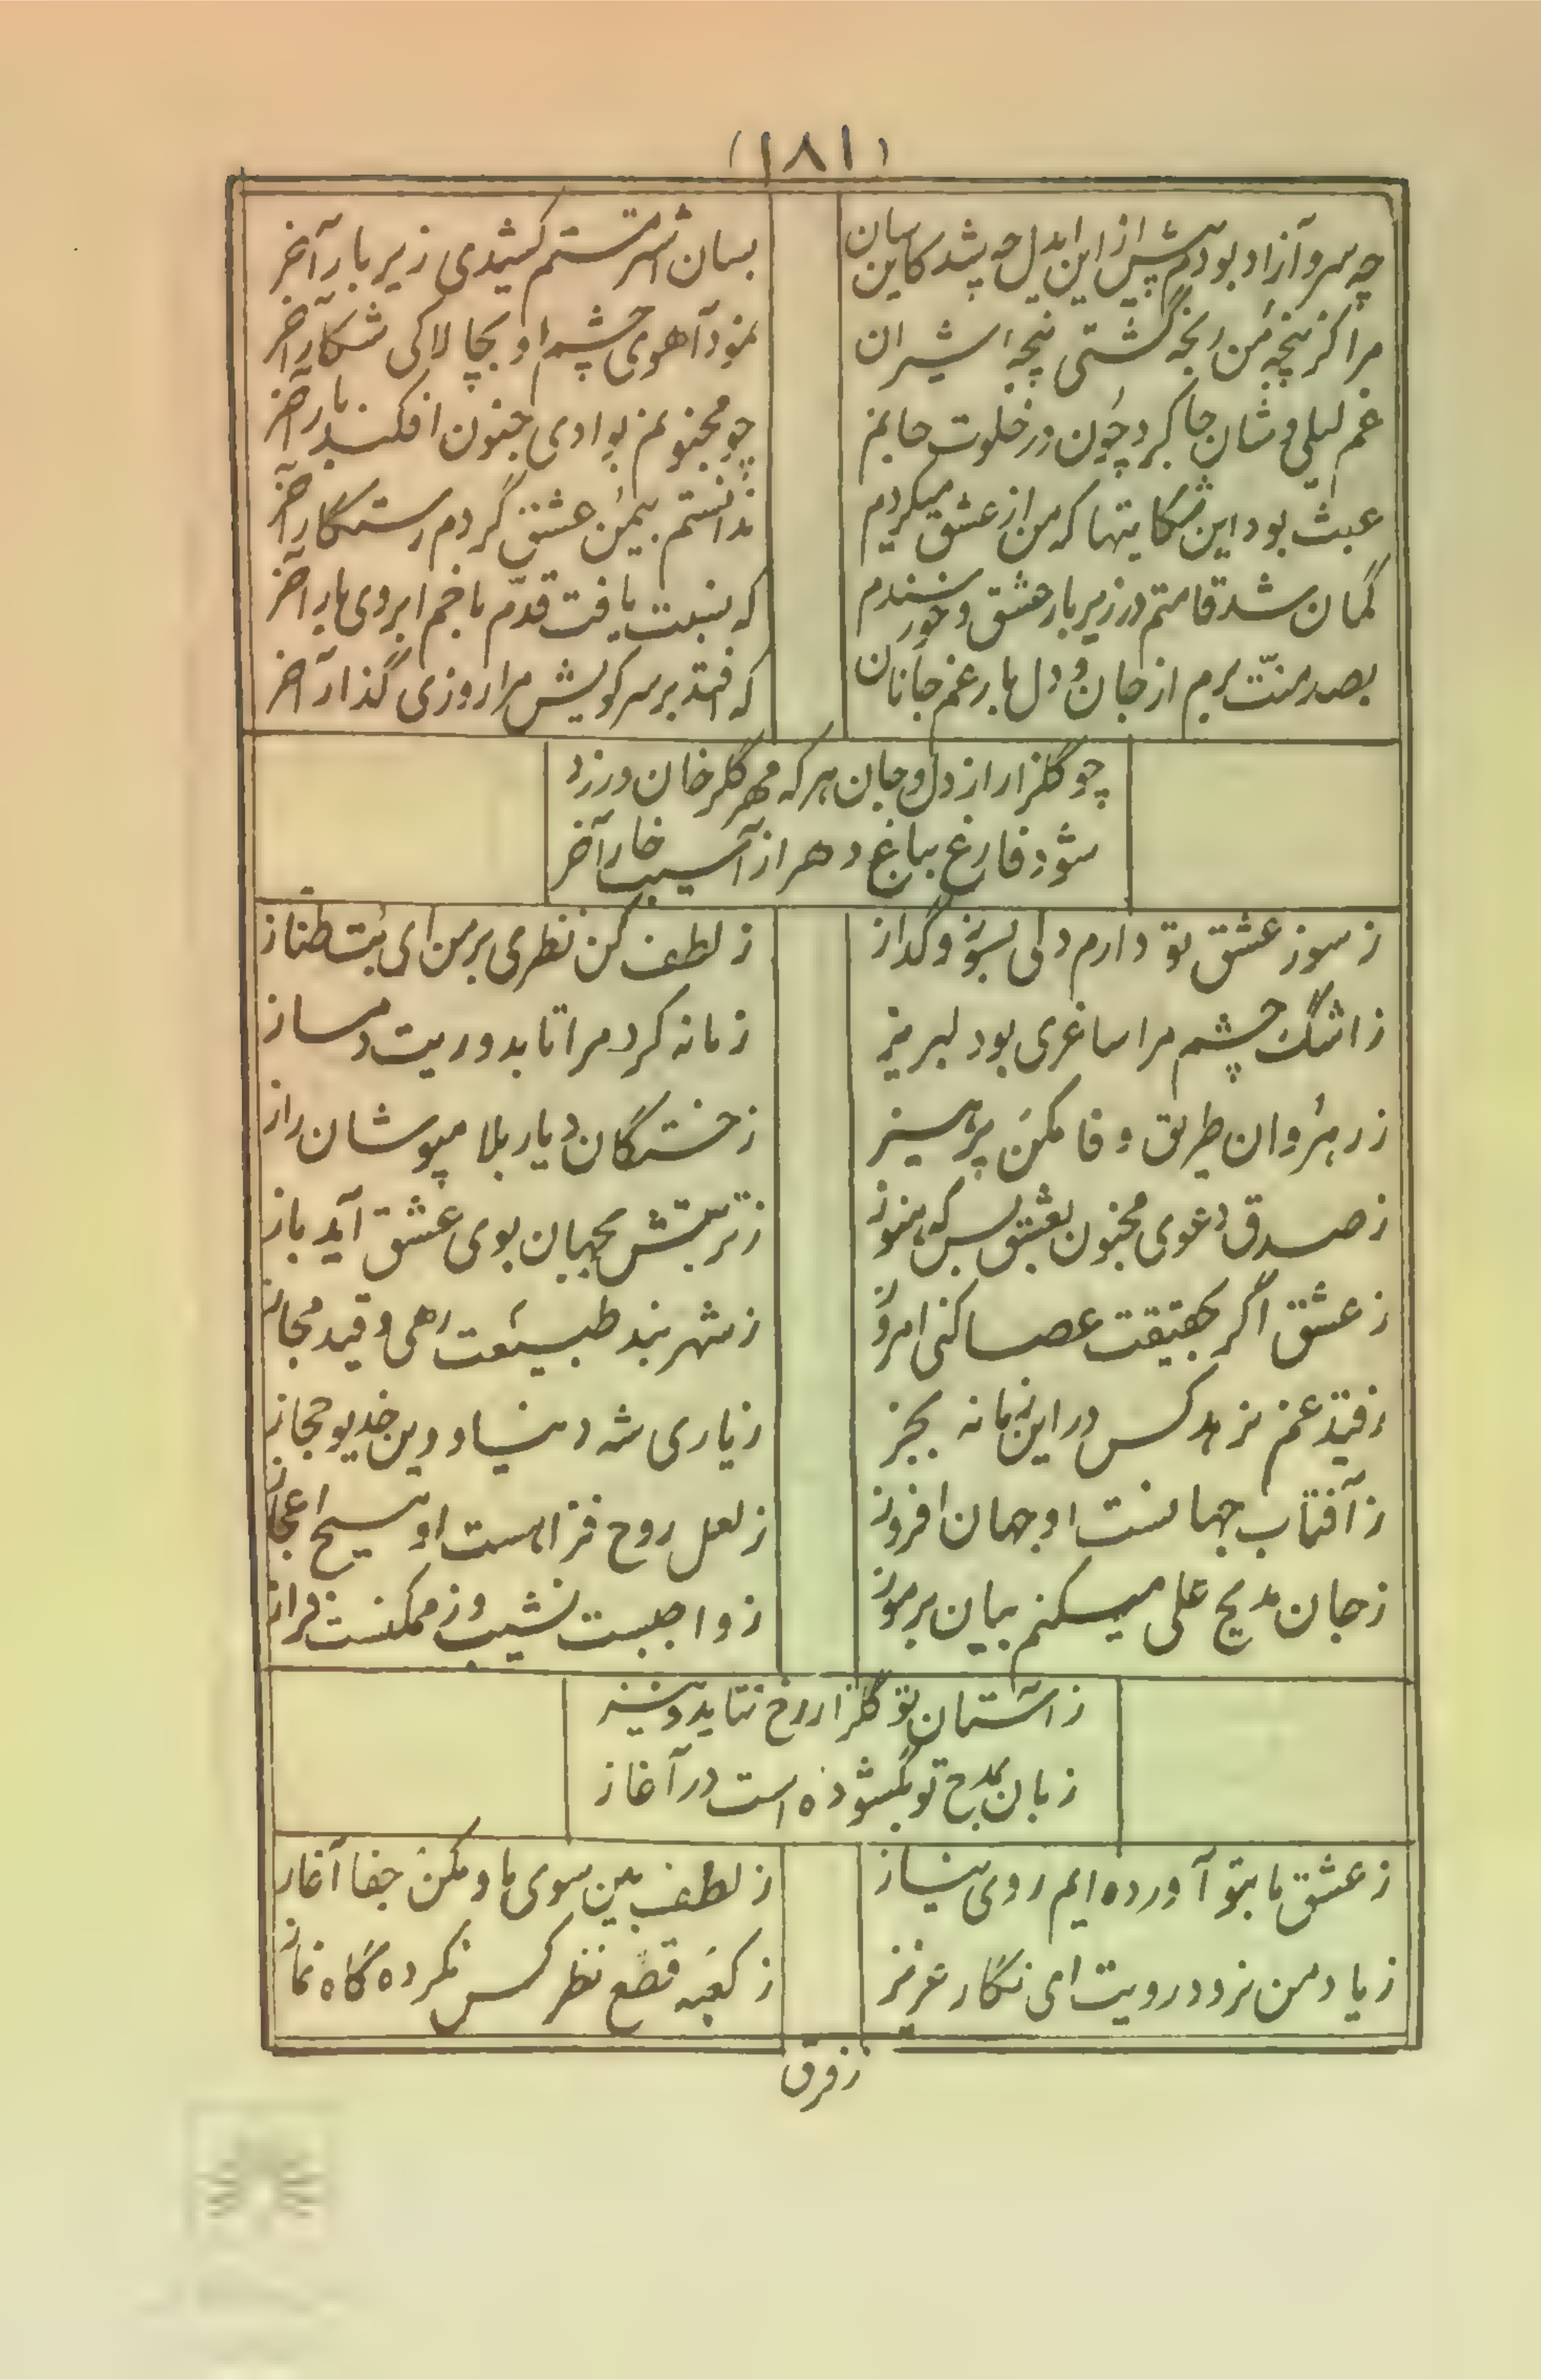 (۱۸۱)
چه سرو آزاد بودم پیش از این ایدل چه شد کاین سان
بسان اشتر مستم کشیدی زیر بار آخر
مرا کز پنجه من رنجه گشتی پنجه شیران
نمود آهوی چشم او بچالاکی شکار آخر
غم لیلی وشان جا کرد چون در خلوت جانم
چو مجنونم بوادی جنون افکند یار آخر
عبث بود این شکایتها که من از عشق میکردم
ندانستم بیمن عشق گردم رستگار آخر
کمان شد قامتم در زیر بار عشق و خورسندم
که نسبت یافت قدم با خم ابروی یار آخر
بصد منت برم از جان و دل بار غم جانان
که افتد بر سر کویش مرا روزی گذار آخر
چو گلزار از دل و جان هر که مهر گلرخان ورزد
شود فارغ بباغ دهر از آسیب خار آخر
ز سوز عشق تو دارم دلی بسوز و گداز
ز لطف کن نظری بر من ای بت طناز
ز اشک چشم مرا ساغری بود لبریز
زمانه کرد مرا تا بدوریت دمساز
ز رهروان طریق وفا مکن پرهیز
ز خستگان دیار بلا مپوشان راز
ز صدق دعوی مجنون بعشق بس که هنوز
ز تربتش بجهان بوی عشق آید باز
ز عشق اگر بحقیقت عصا کنی امروز
ز شهر بند طبیعت رهی و قید مجاز
ز قید غم نرهد کس در این زمانه بجز
ز یاری شه دنیا و دین خدیو حجاز
ز آفتاب جهانست او جهان افروز
ز لعل روح فزا هست او مسیح اعجاز
ز جان مدیح علی میکنم بیان بر موز
ز واجبست نشیب و ز ممکنست فراز
ز آستان تو گلزار رخ نتابد ونیز
زبان بمدح تو بگشوده است در آغاز
ز عشق ما بتو آورده ایم روی نیاز
ز لطف بین سوی ما و مکن جفا آغاز
ز یاد من نرود رویت ای نگار عزیز
ز کعبه قطع نظر کس نکرده گاه نماز
ز فرق